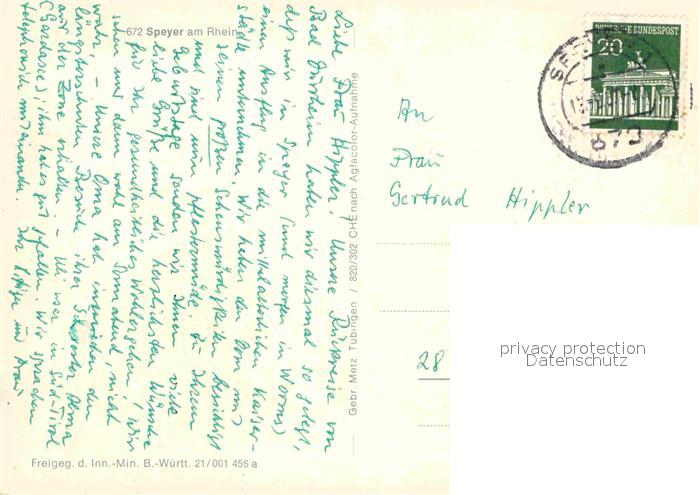 672 Speyer am Rhein
Liebe Frau Hippler! Unsere Rückreise von
Bad Dürrheim haben wir diesmal so gelegt,
daß wir in Speyer (und morgen in Worms)
einen Ausflug in die mittelalterlichen Kaiser-
städte unternehmen. Wir haben den Dom mit
seinen großen Sehenswürdigkeiten besichtigt
und sind nun pflastermüde. Zu Ihrem
Geburtstage senden wir Ihnen viele
liebe Grüße und die herzlichsten Wünsche
für Ihr gesundheitliches Wohlergehen! Wir
sehen uns dann wohl am Sonnabend, nicht
wahr, – Unsere Oma hat inzwischen den
längstersehnten Besuch ihrer Schwester
aus der Zone erhalten – Uli war in Süd-Tirol
(Gardasee); ihm hat es gut gefallen. Wir sprachen
telephonisch miteinander. Ihre und
Gebr. Metz Tübingen / 820/302 CHE nach Agfacolor-Aufnahme
Freigeg. d. Inn.-Min. B.-Württ. 21/001 456 a
DEUTSCHE BUNDESPOST
20
673
An
Frau
Gertrud Hippler
28
privacy protection
Datenschutz